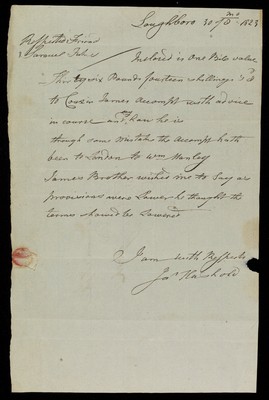 Loughboro 30 1823
Respected Friend
Samuel
Inclosed is One Bill value
Thirtysix Pounds fourteen shillings
to Cousin James Accompt with advice
in course and how he is
through some Mistake the Accompt hath
been to London to Wm Manley
James Brother wishes me to Say as
Provisions were Lower he thought the
terms should be Lowered
I am with Respects